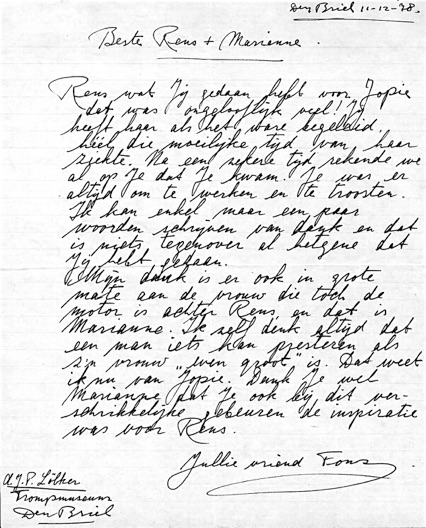 Den Briel 11-12-'88.
Beste Rens + Marianne.
Rens wat Jij gedaan hebt voor Jopie
dat was ongelooflijk veel! Jij
heeft haar als het ware begeleid
héél die moeilijke tijd van haar
ziekte. Na een zekere tijd rekende we
al op Je dat Je kwam. Je was er
altijd om te werken en te troosten.
Ik kan enkel maar een paar
woorden schrijven van dank en dat
is niets tegenover al hetgene dat
Jij hebt gedaan.
Mijn dank is er ook in grote
mate aan de vrouw die toch de
motor is achter Rens, en dat is
Marianne. Ik zelf denk altijd dat
een man iets kan presteren als
z'n vrouw „even groot" is. Dat weet
ik nu van Jopie. Dank Je wel
Marianne dat Je ook bij dit ver-
schrikkelijke gebeuren de inspiratie
was voor Rens.
Jullie vriend Fons
A.J.P. Lölker
Trompmuseum
Den Briel